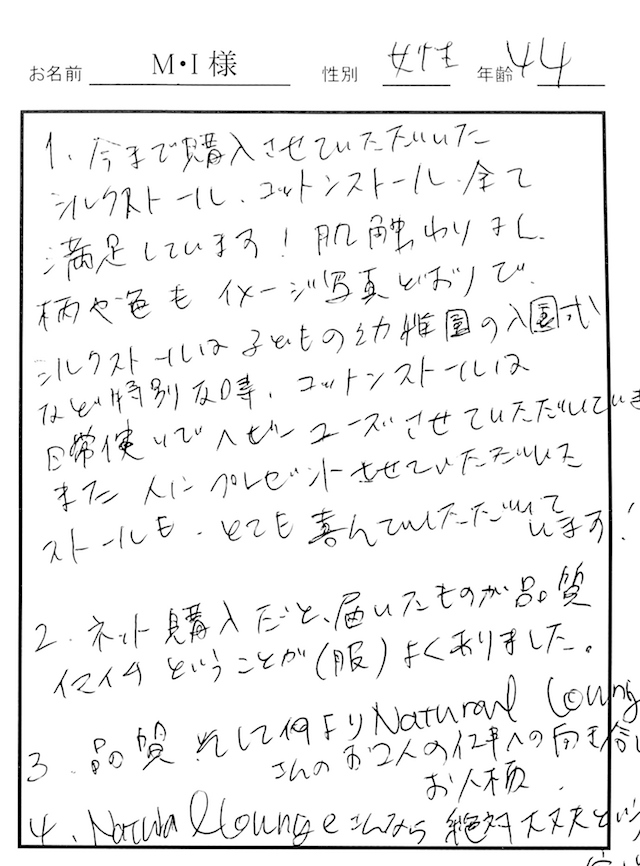 お名前 M・I 様 性別 女性 年齢 44
1、今まで購入させていただいた
シルクストール、コットンストール、全て
満足しています！肌触わりもよく、
柄や色もイメージ写真どおりで、
シルクストールは子どもの幼稚園の入園式
など特別な時、コットンストールは
日常使いでヘビーユーズさせていただいていま
また人にプレゼントさせていただいた
ストールも、とても喜んでいただいて
います！
2、ネット購入だと、届いたものが品質
イマイチということが（服）よくありました。
3、品質そして何よりNatural Loung
さんのお2人の仕事への向き合い
お人柄、
4、Natural Loungeさんなら絶対大丈夫という